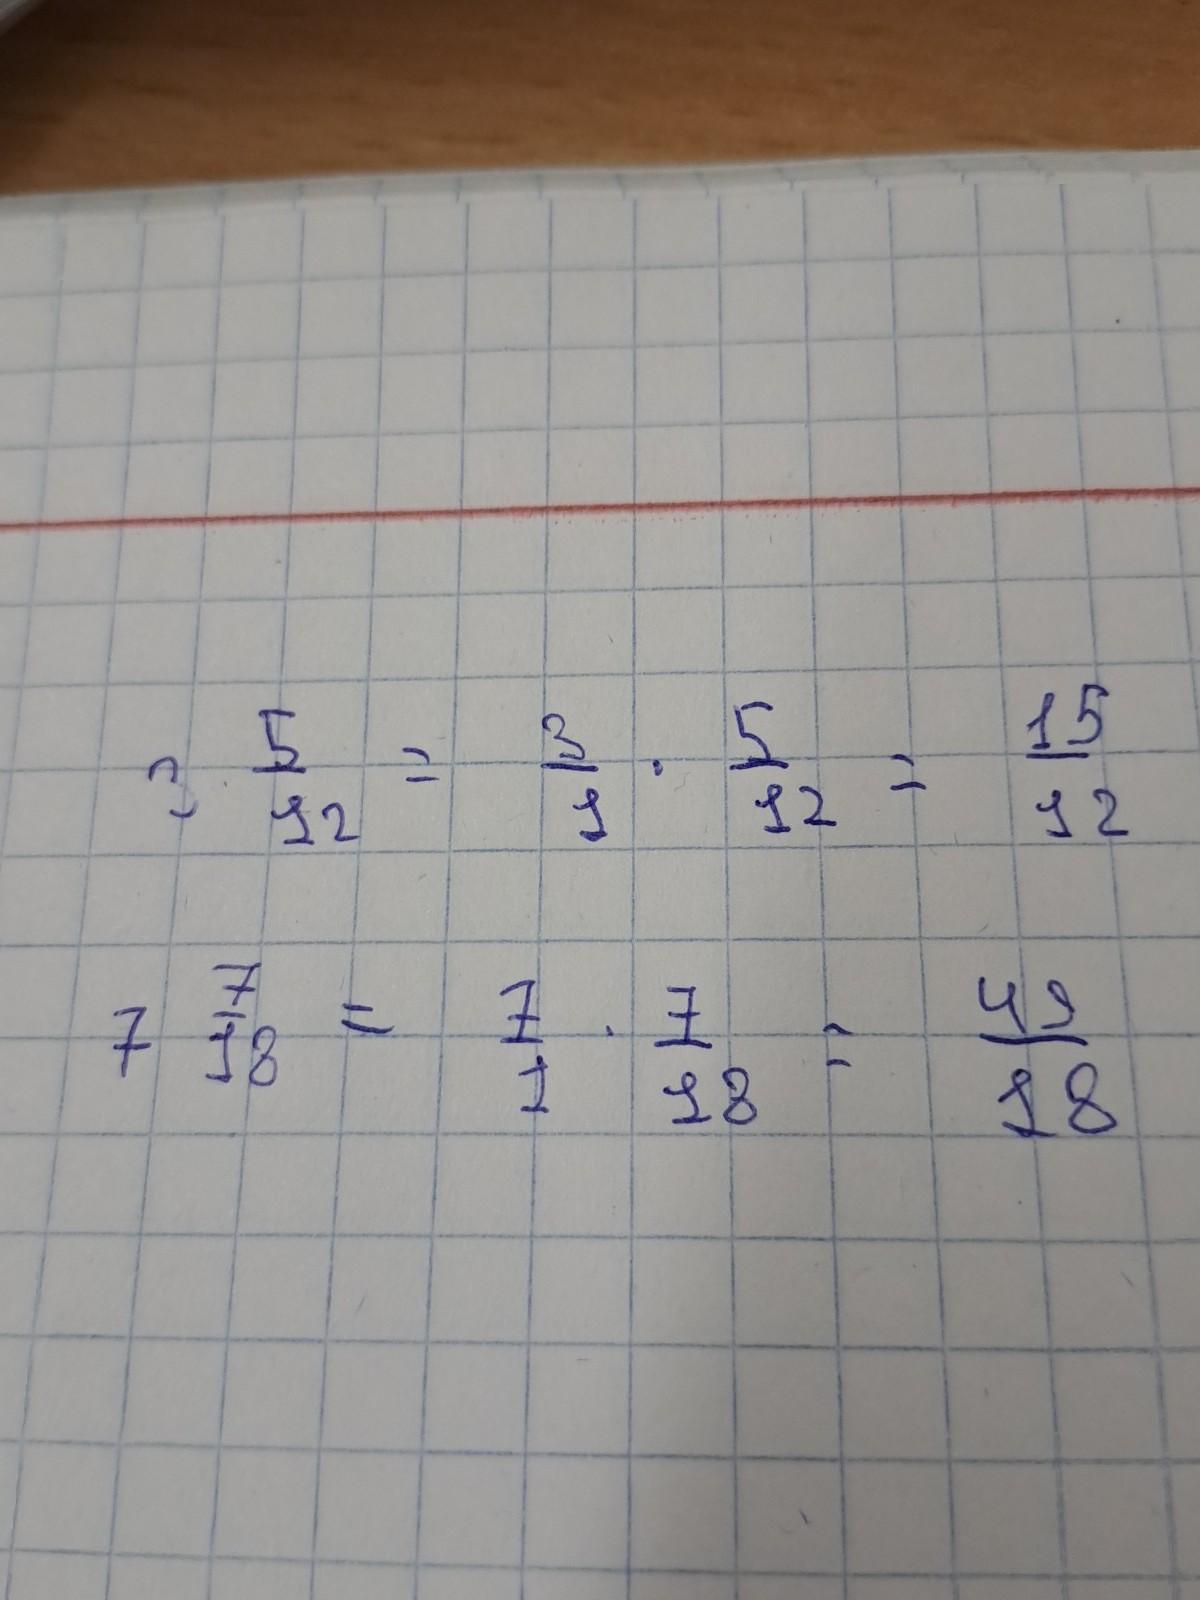 3 5/12 = 3/1 · 5/12 = 15/12
7 7/18 = 7/1 · 7/18 = 49/18